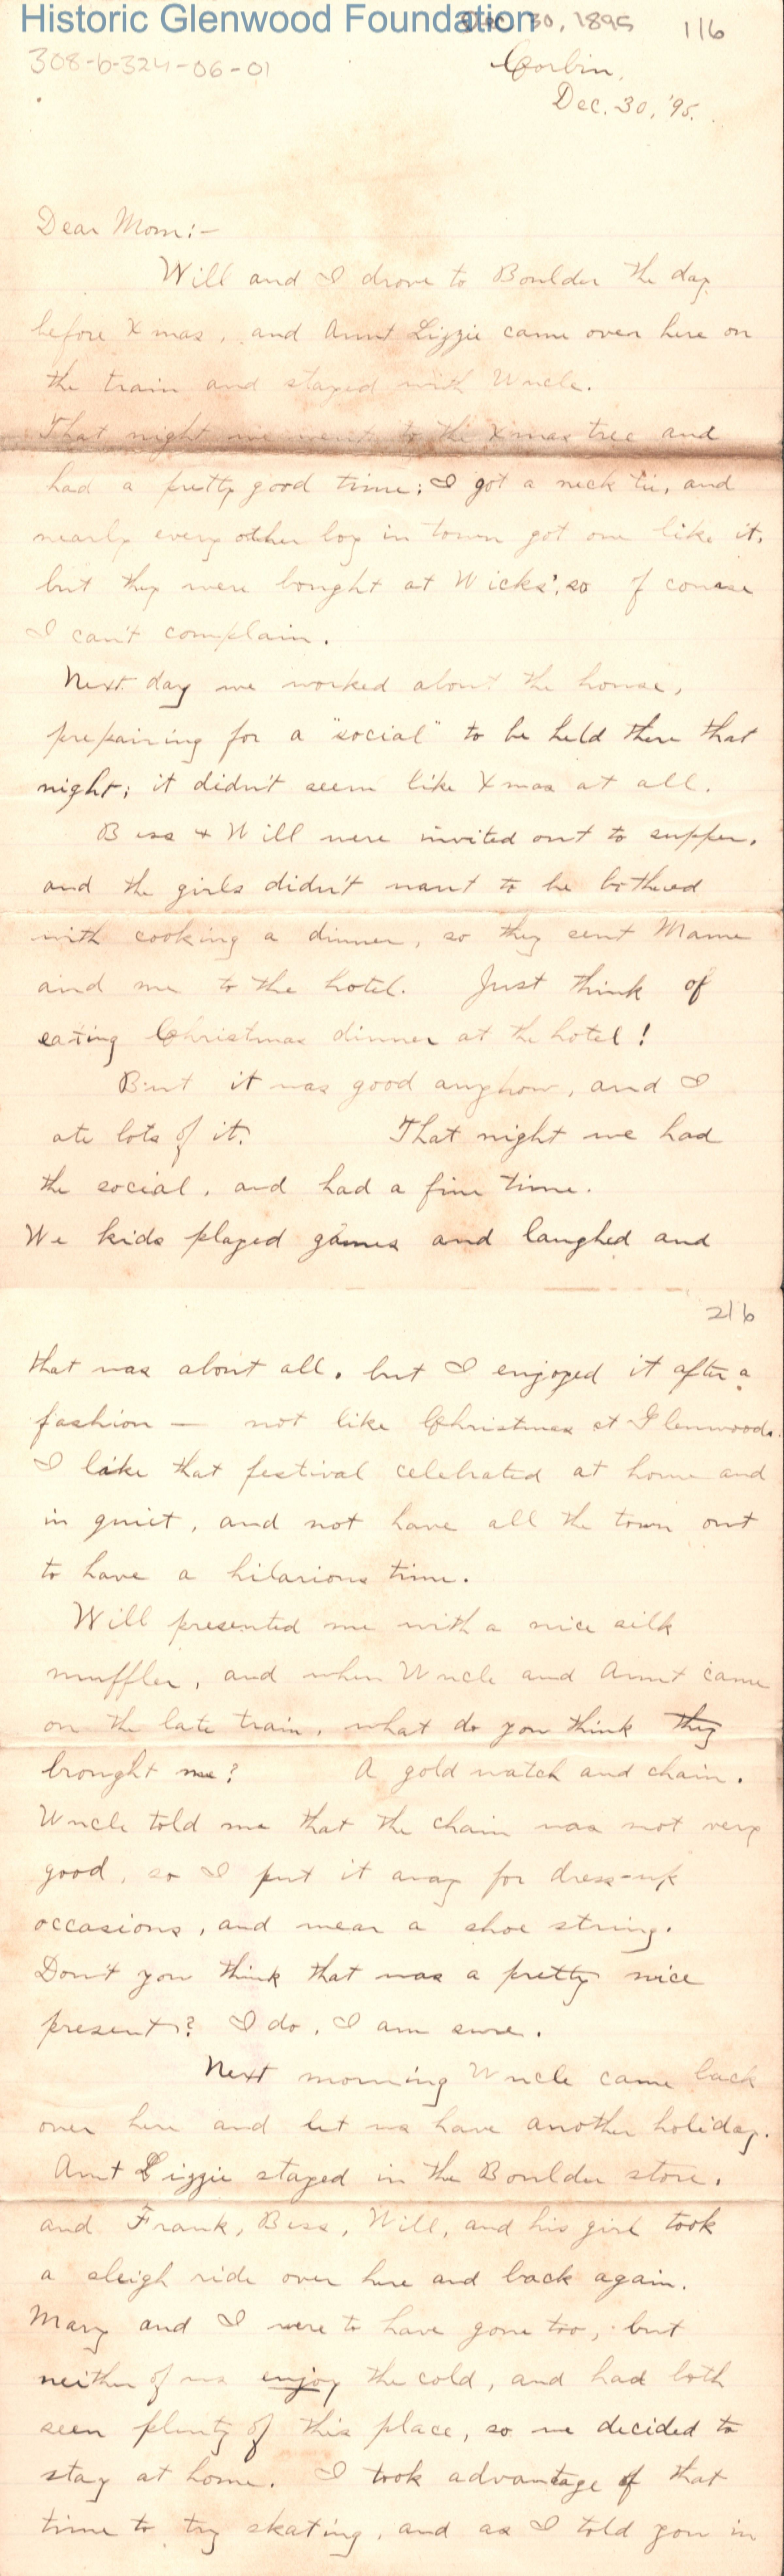 Historic Glenwood Foundation
Dec 30, 1895 116
308-6-324-06-01
Corbin,
Dec. 30, '95.
Dear Mom:-
Will and I drove to Boulder the day
before Xmas, and Aunt Lizzie came over here on
the train and stayed with Uncle.
That night we went to the Xmas tree and
had a pretty good time; I got a neck tie, and
nearly every other boy in town got one like it,
but they were bought at Wicks', so of course
I can't complain.
Next day we worked about the house,
prepairing for a "social" to be held there that
night; it didn't seem like Xmas at all.
Bess & Will were invited out to supper,
and the girls didn't want to be bothered
with cooking a dinner, so they sent Mame
and me to the hotel. Just think of
eating Christmas dinner at the hotel!
But it was good anyhow, and I
ate lots of it. That night we had
the social, and had a fine time.
We kids played games and laughed and
216
that was about all, but I enjoyed it after a
fashion — not like Christmas at Glenwood.
I like that festival celebrated at home and
in quiet, and not have all the town out
to have a hilarious time.
Will presented me with a nice silk
muffler, and when Uncle and Aunt came
on the late train, what do you think they
brought me? A gold watch and chain.
Uncle told me that the chain was not very
good, so I put it away for dress-up
occasions, and wear a shoe string.
Don't you think that was a pretty nice
present? I do, I am sure.
Next morning Uncle came back
over here and let us have another holiday.
Aunt Lizzie stayed in the Boulder store,
and Frank, Bess, Will, and his girl took
a sleigh ride over here and back again.
Mary and I were to have gone too, but
neither of us enjoy the cold, and had both
seen plenty of this place, so we decided to
stay at home. I took advantage of that
time to try skating, and as I told you in